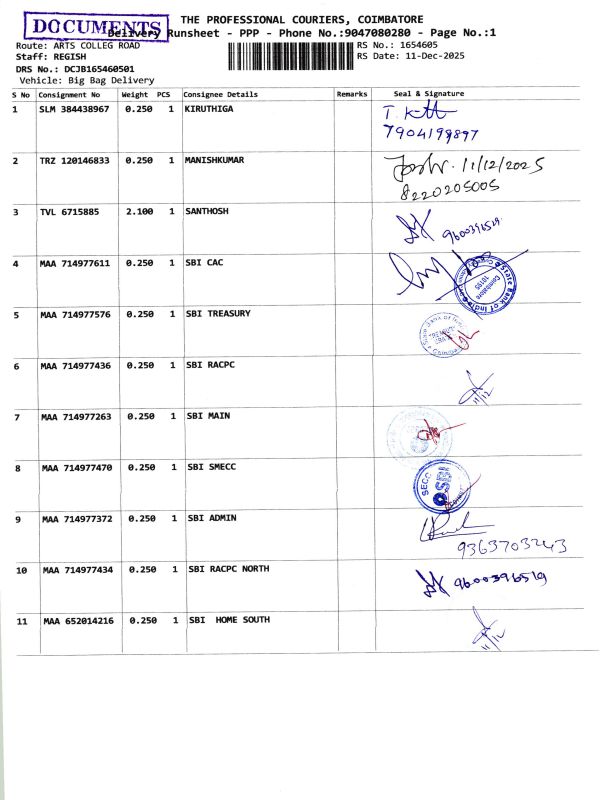 DOCUMENTS
THE PROFESSIONAL COURIERS, COIMBATORE
Delivery Runsheet - PPP - Phone No.:9047080280 - Page No.:1
Route: ARTS COLLEG ROAD
RS No.: 1654605
Staff: REGISH
RS Date: 11-Dec-2025
DRS No.: DCJB165460501
Vehicle: Big Bag Delivery
S No Consignment No Weight PCS Consignee Details Remarks Seal & Signature
1 SLM 384438967 0.250 1 KIRUTHIGA
7904199897
2 TRZ 120146833 0.250 1 MANISHKUMAR 11/12/2025
8220205005
3 TVL 6715885 2.100 1 SANTHOSH 9600396519
4 MAA 714977611 0.250 1 SBI CAC
State Bank of India
Coimbatore
5 MAA 714977576 0.250 1 SBI TREASURY
6 MAA 714977436 0.250 1 SBI RACPC 11/12
7 MAA 714977263 0.250 1 SBI MAIN
8 MAA 714977470 0.250 1 SBI SMECC
SBI
9 MAA 714977372 0.250 1 SBI ADMIN
9363703243
10 MAA 714977434 0.250 1 SBI RACPC NORTH 9600396519
11 MAA 652014216 0.250 1 SBI HOME SOUTH 11/12